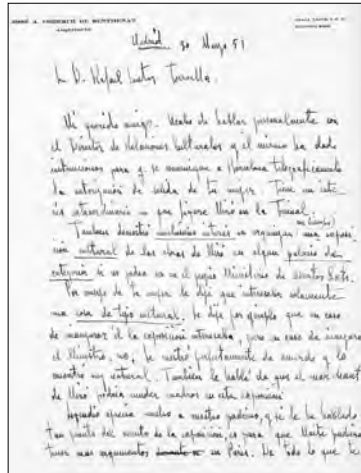 JOSÉ A. CODERCH DE SENTMENAT
ARQUITECTO
Madrid 30 Mayo 51
Sr. D. Rafael Santos Torroella.
Mi querido amigo. Acabo de hablar personalmente con
el Director de Relaciones Culturales y él mismo ha dado
instrucciones para q. se comunique a Barcelona telegráficamente
la autorización de salida de tu mujer. Tiene un inte-
rés extraordinario en que figure Miró en la Trienal.
También demostró muchísimo interés en organizar una exposi-
ción cultural de las obras de Miró en algún palacio de
categoría si no podía ser en el propio Ministerio de Asuntos Exts.
Por consejo de tu mujer le dije que interesaba solamente
una cosa de tipo cultural. Le dije por ejemplo que en caso
de inaugurar él la exposición interesaba, pero en caso de inaugurar
el Ministro, no. Se mostró perfectamente de acuerdo y lo
encontró muy natural. También le hablé de que el marchant
de Miró podría vender cuadros en esta exposición
mucho a nuestro padrino, y se le he hablado
tan pronto del asunto de la exposición, es para que Marte pudiera
tener más argumentos en París. De todo lo que te